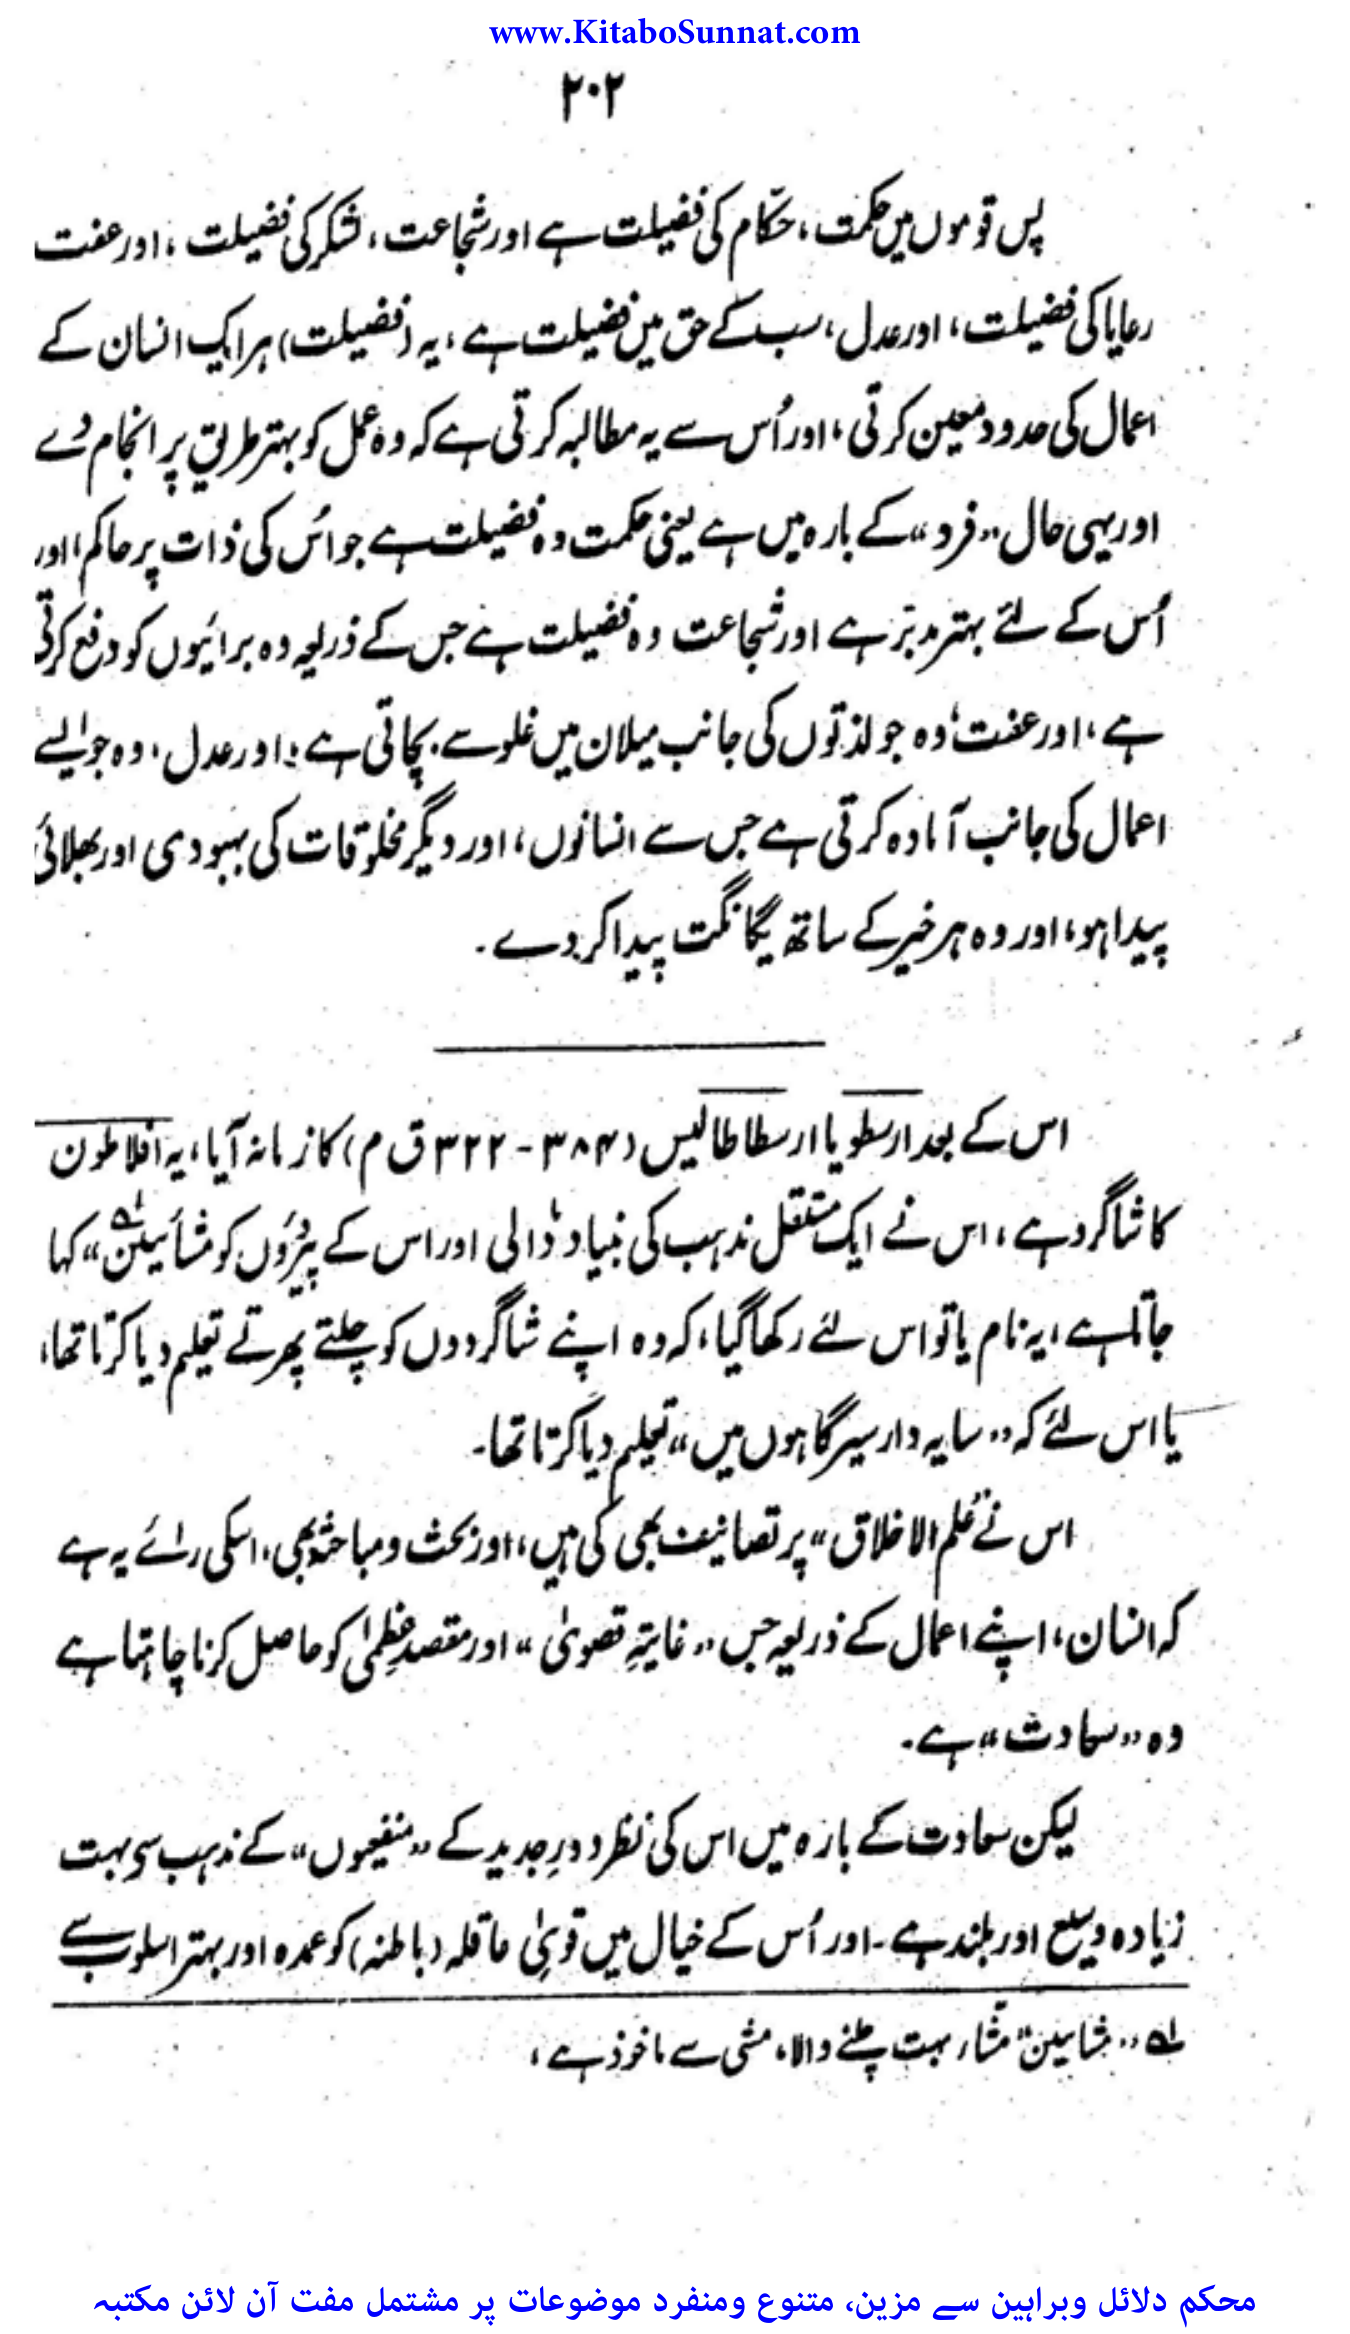 www.KitaboSunnat.com
۲۰۲
پس قوموں میں حکمت، حکّام کی فضیلت ہے اور شجاعت، لشکر کی فضیلت، اور عفت
رعایا کی فضیلت، اور عدل، سب کے حق میں فضیلت ہے، یہ (فضیلت) ہر ایک انسان کے
اعمال کی حدود معین کرتی، اور اُس سے یہ مطالبہ کرتی ہے کہ وہ عمل کو بہتر طریق پر انجام دے
اور یہی حال "فرد" کے بارہ میں ہے یعنی حکمت وہ فضیلت ہے جو اُس کی ذات پر حاکم، اور
اُس کے لئے بہتر مدبّر ہے اور شجاعت وہ فضیلت ہے جس کے ذریعہ وہ برائیوں کو دفع کرتی
ہے، اور عفت، وہ جو لذتوں کی جانب میلان میں غلو سے بچاتی ہے؛ اور عدل، وہ جو ایسے
اعمال کی جانب آمادہ کرتی ہے جس سے انسانوں، اور دیگر مخلوقات کی بہبودی اور بھلائی
پیدا ہو، اور وہ ہر خیر کے ساتھ یگانگت پیدا کر دے۔
اس کے بعد ارسطو یا ارسطاطالیس (۳۸۴ - ۳۲۲ ق م) کا زمانہ آیا، یہ افلاطون
کا شاگرد ہے، اس نے ایک مستقل مذہب کی بنیاد ڈالی اور اس کے پیرؤوں کو "مشائیین ؎۱" کہا
جاتا ہے، یہ نام یا تو اس لئے رکھا گیا، کہ وہ اپنے شاگردوں کو چلتے پھرتے تعلیم دیا کرتا تھا،
یا اس لئے کہ "سایہ دار سیر گاہوں میں" تعلیم دیا کرتا تھا۔
اس نے "علم الاخلاق" پر تصانیف بھی کی ہیں، اور بحث و مباحثو بھی، اسکی رائے یہ ہے
کہ انسان، اپنے اعمال کے ذریعہ جس "غایتہِ قصویٰ" اور مقصدِ عظمیٰ کو حاصل کرنا چاہتا ہے
وہ "سعادت" ہے۔
لیکن سعادت کے بارہ میں اس کی نظر دورِ جدید کے "منفعیوں" کے مذہب سی بہت
زیادہ وسیع اور بلند ہے۔ اور اُس کے خیال میں قویٰ عاقلہ (باطنہ) کو عمدہ اور بہتر اسلوب سے
؎۱ "مشایین" مشّاء، بہت چلنے والا، مشی سے ماخوذ ہے،
محکم دلائل وبراہین سے مزین، متنوع ومنفرد موضوعات پر مشتمل مفت آن لائن مکتبہ